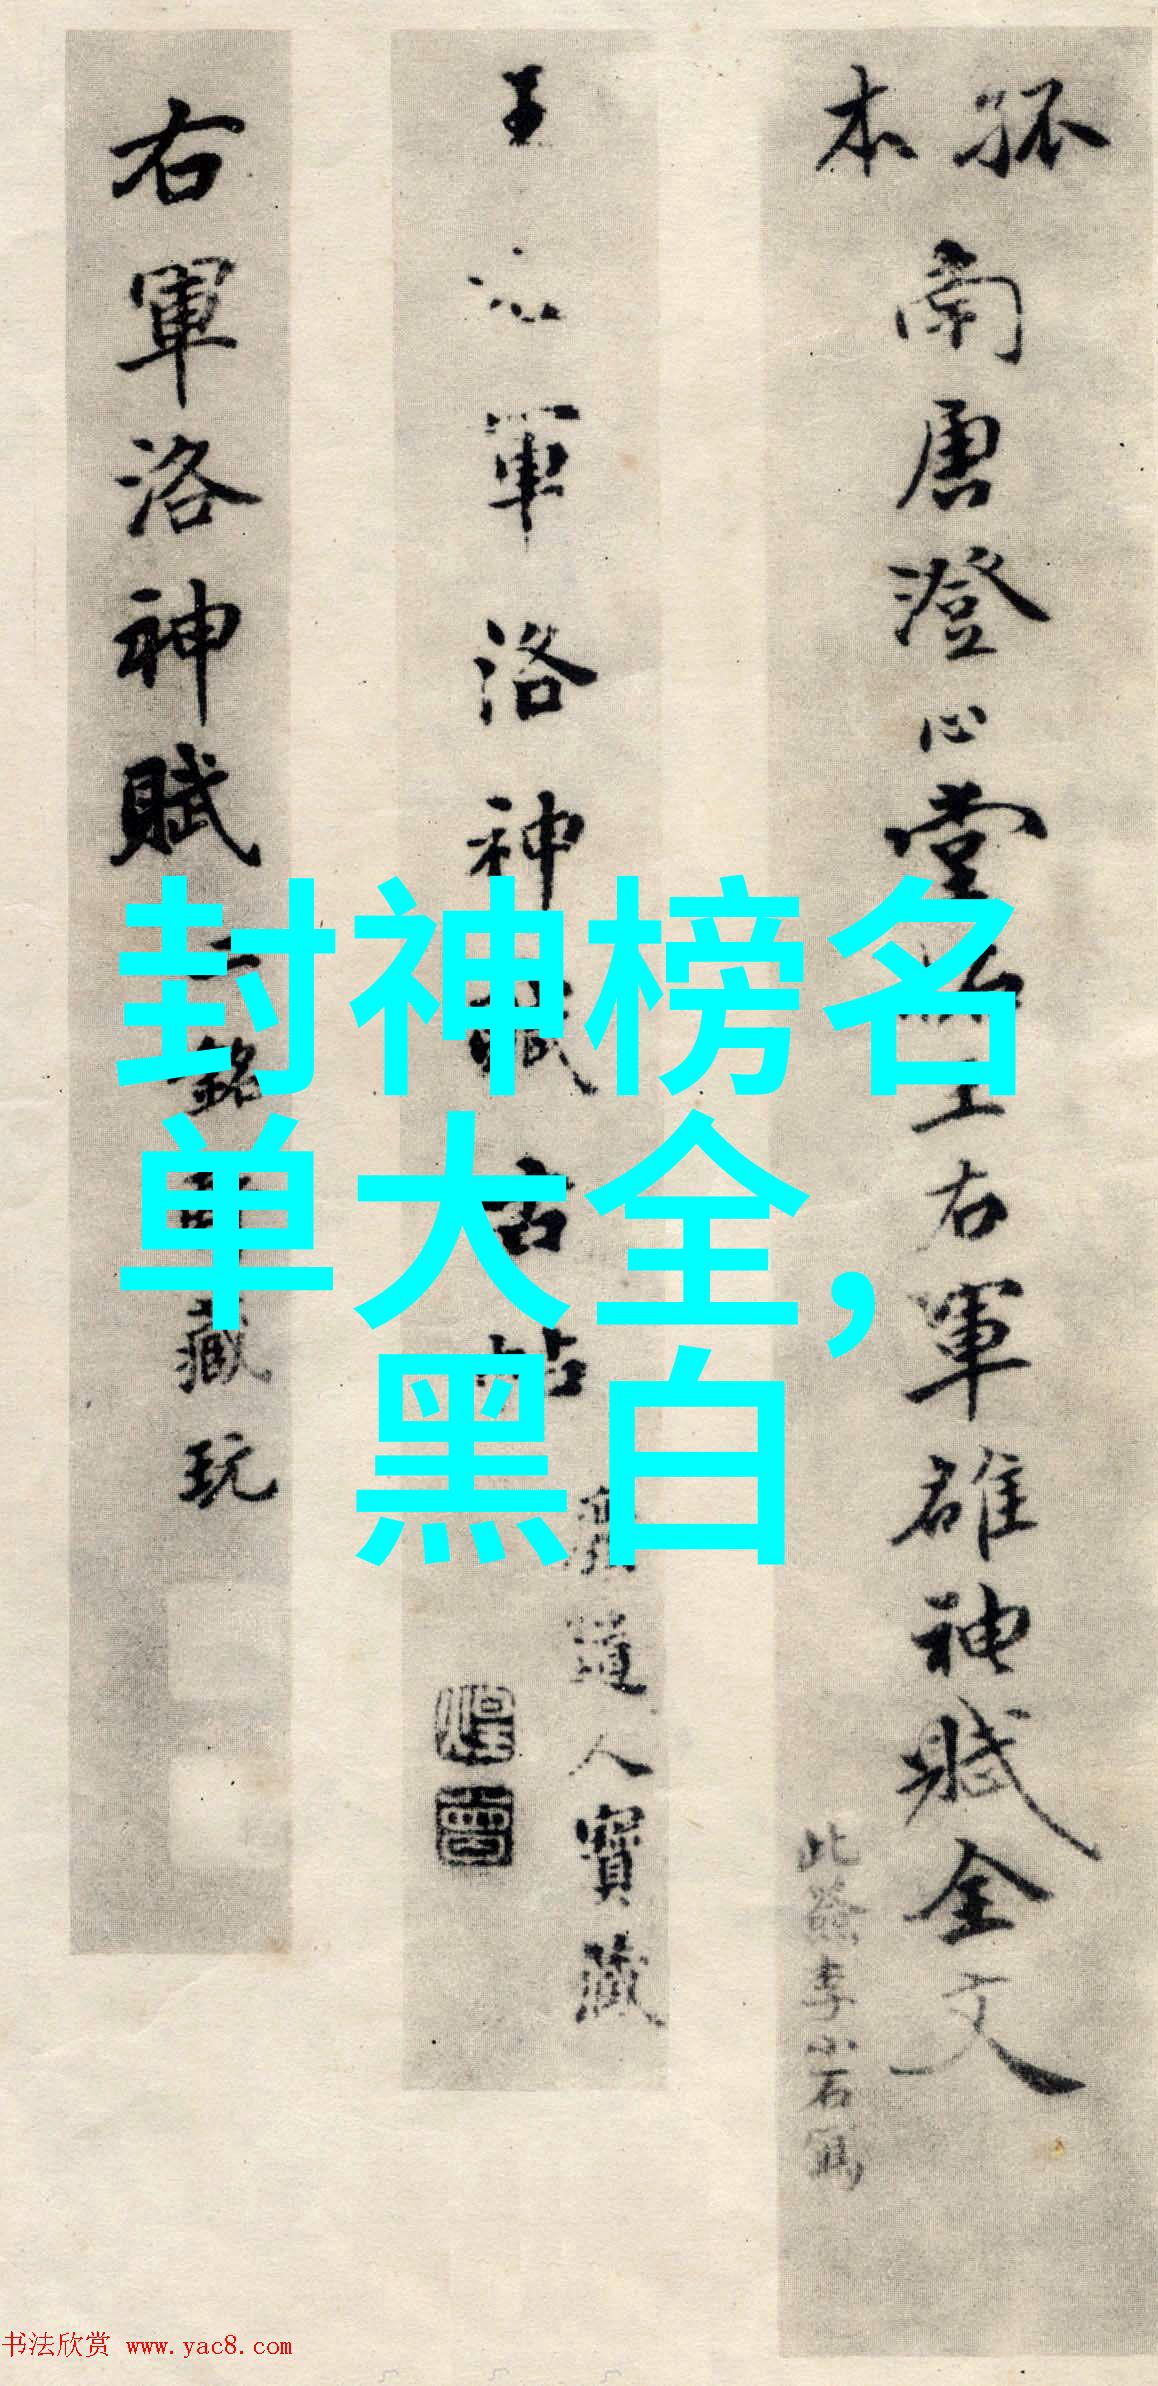 孤本
南唐澄心堂王右軍雒神賦全文
此籤李小石寫
王右軍洛神賦古帖
道人寶藏
右軍洛神賦
二銘藏玩
封神榜名
单大全，
黑白
书法欣赏 www.yac8.com